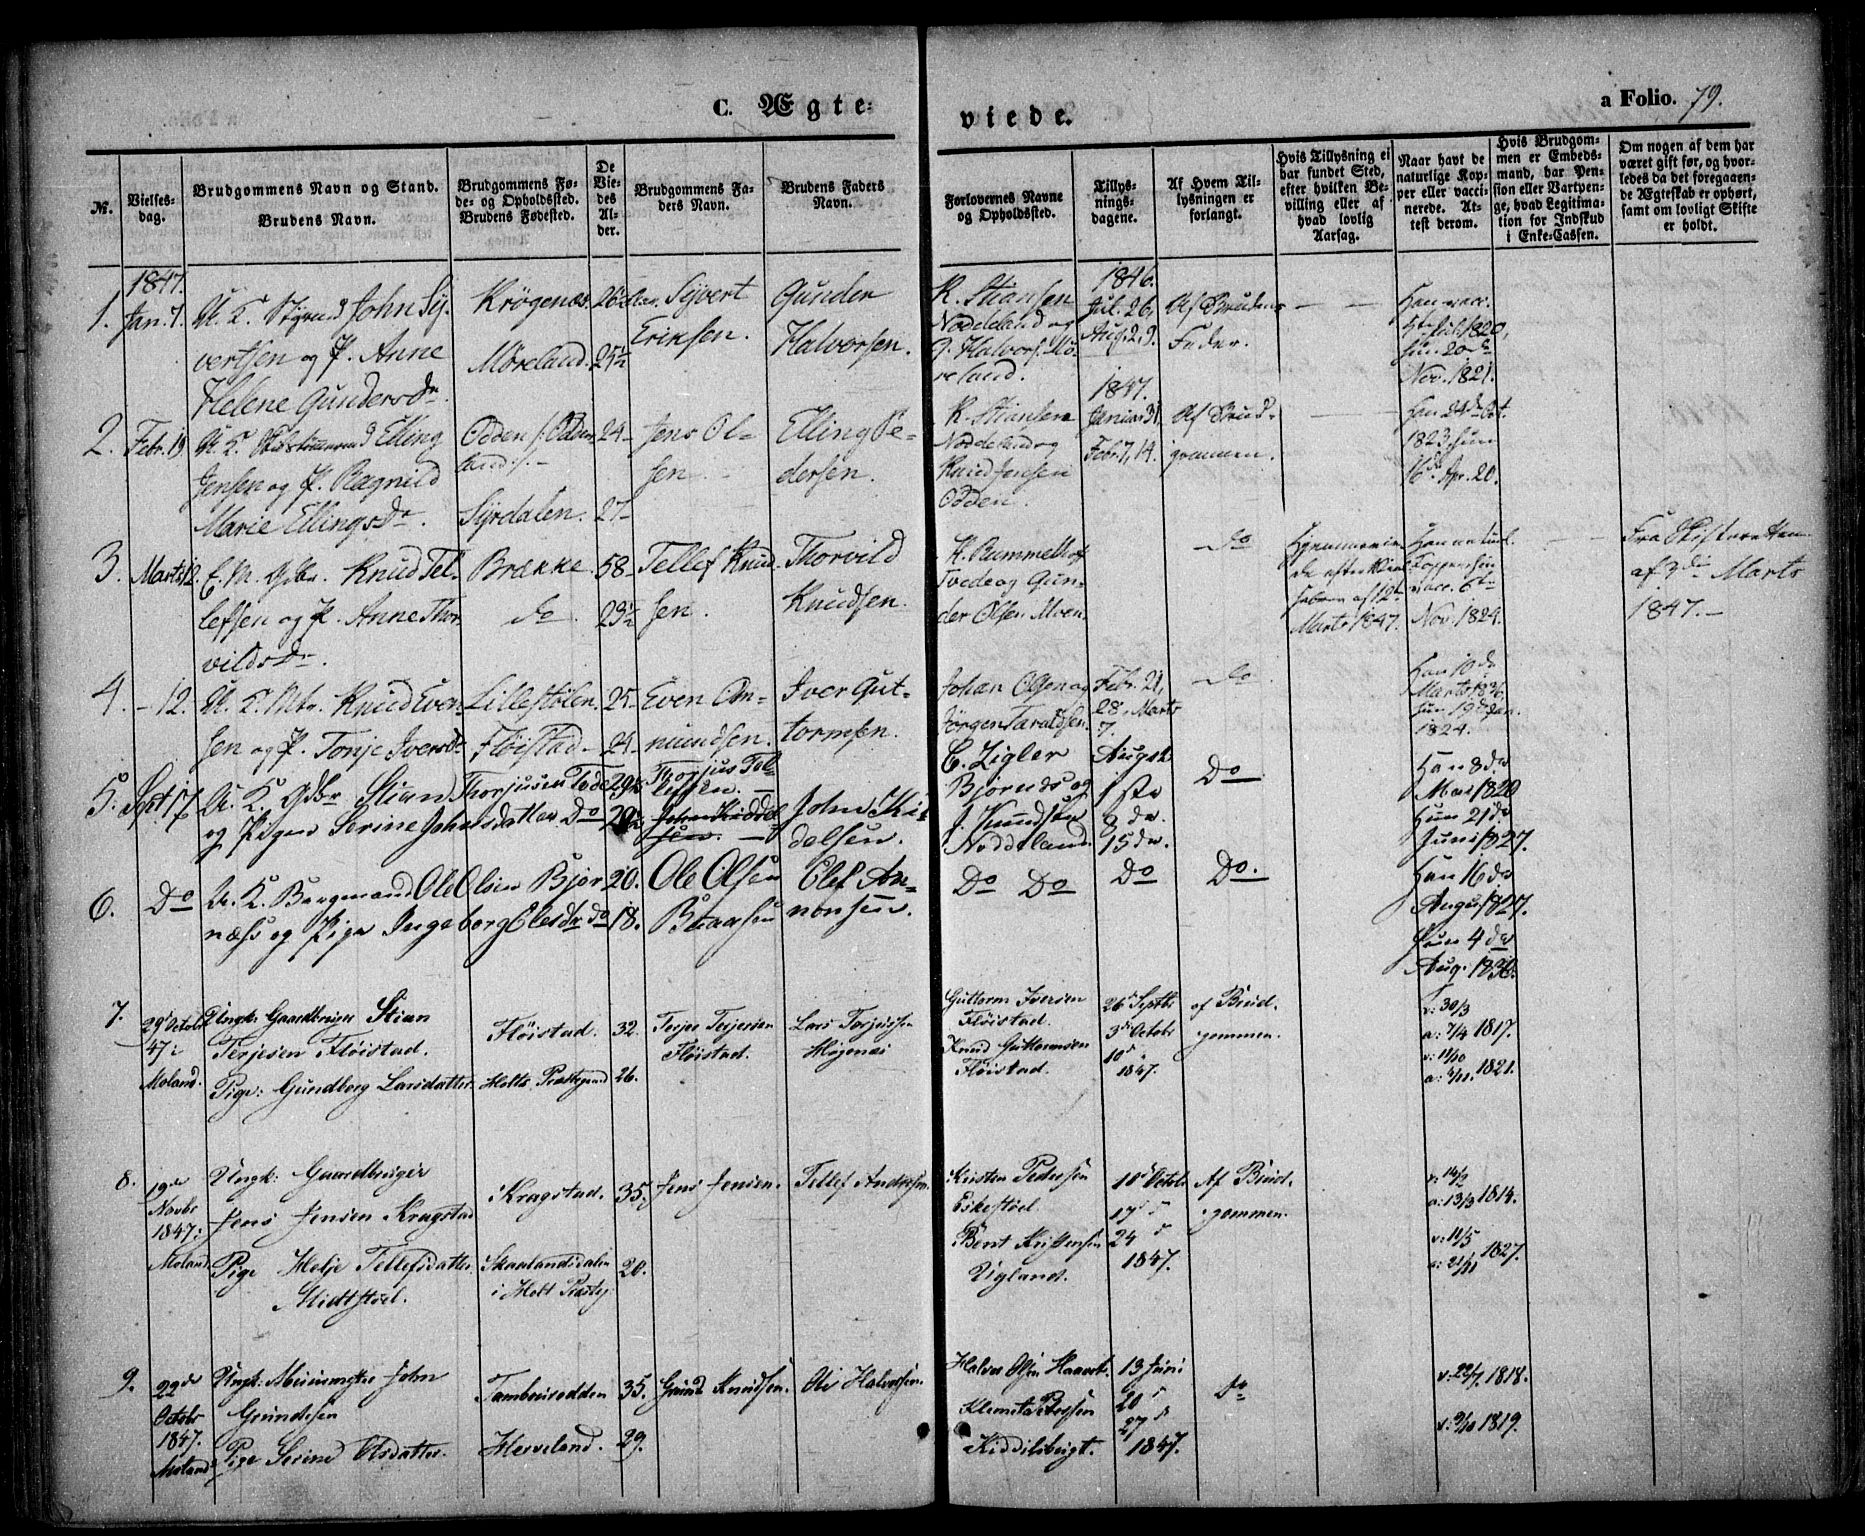 C. Ægte=
viede.
a Folio. 79.
№.
Vielses-
dag.
Brudgommens Navn og Stand.
Brudens Navn.
Brudgommens Fø-
de- og Opholdsted.
Brudens Fødested.
De
Vie-
des
Al-
der.
Brudgommens Fa-
ders Navn.
Brudens Faders
Navn.
Forlovernes Navne
og Opholdsted.
Tillys-
nings-
dagene.
Af Hvem Til-
lysningen er
forlangt.
Hvis Tillysning ei
har fundet Sted,
efter hvilken Be-
villing eller af
hvad lovlig
Aarsag.
Naar havt de
naturlige Kop-
per eller vacci-
nerede. At-
test derom.
Hvis Brudgom-
men er Embeds-
mand, har Pen-
sion eller Vartpen-
ge, hvad Legitima-
tion for Indskud
i Enke-Cassen.
Om nogen af dem har
været gift før, og hvor-
ledes da det foregaaen-
de Ægteskab er ophørt,
samt om lovligt Skifte
er holdt.
1847.
1. Jan. 7.
U. K. Styrmd John Sy-
vertsen og P. Anne
Helene Gundersdr
Krøgenæs.
Møreland.
26
25½
Syvert
Eriksen.
Gunder
Halvorsen.
K. Stiansen
Noddeland og
G. Halvors. Mø-
reland.
1846.
Jul. 26,
Aug. 2, 9.
Af Brudens
Fader.
Han vacc.
5te Juli 1820,
hun 20de
Nov. 1821.
2. Febr. 19
Elling
Jensen og P. Ragnild
Marie Ellingsdr.
Odden /: Odden-
land :/.
Syrdalen.
24
27
Jens Ol-
sen.
Elling Pe-
dersen.
K. Stiansen
Noddeland og
Knud Jensen
Odden.
1847.
Januar 31
Febr. 7, 14.
Af Brud-
gommen.
Han 24de Oct.
1823, hun
16de Apr. 20.
3. Marts 12.
E. M. Gdbr. Knud Tel-
lefsen og P. Anne Thor-
vildsdr.
Brække.
do.
58
23½
Tellef Knud-
sen.
Thorvild
Knudsen.
H. Rummelhof
Tvede og Gun-
der Olsen Moen.
do
af 12te
Marts 1847.
Han naturl.
Kopper, hun
vacc. 6te
Nov. 1824.
Fra Skifteretten
af 3die Marts
1847.
4. - 12.
U. K. Mtr. Knud Even-
sen og P. Tonje Iversdr
Lillestølen.
Fløistad
25
24
Even Am-
mundsen.
Iver Gut-
tormsen.
Johan Olsen og
Jørgen Taraldsen.
Febr. 21,
28, Marts
7.
do
Han 10de
Marts 1836,
hun 19de Jan.
1824.
5. Sept 17
U. K. Gdbr Stian Thorjusen Tvede
og Pigen Serine Johnsdatter Do
29¼
20½
Thorjus Tel-
lefsen.
John Kiddel-
sen.
John Kid-
delsen.
C. Zigler
Bjørnds og
J. Knudsen
Noddeland
August
1ste
8de.
15de.
Do
Han 8de
Mai 1820
Hun 21de
Juni 1827.
6. Do
U. K. Bergmand Ole Olsen Bjør-
næss og Pige Ingeborg Olesdr do
20.
18.
Ole Olsen
Braasen
Olef An-
nonsen.
Do Do
Do
Do.
Han 16de
August 1827.
Hun 4de
Aug. 1830.
7.
29d October
47:
Moland.
Ungk: Gaardbruger Stian
Terjesen Fløistad.
Pige: Gundborg Larsdatter
Fløistad.
Holts Præstegjeld
32.
26.
Terjer Terjesen
Fløistad.
Lars Torjussen
Guttorm Iversen
Fløistad.
Knud Guttormsen
Fløistad.
26d Septbr
3d Octobr
10d
1847.
af Brud-
gommen.
v: 30/3
a: 7/4 1817.
v: 11/10
1821.
8.
19de
Novbr
1847:
Moland
Ungk: Gaardbruger
Jens Jensen Kragstad
Pige Helje Tellefsdatter
Midtstøel.
Kragstad.
Skaalandsdalen
i Holt Præstgj.
35.
20.
Jens Jensen.
Tellef Andersen.
Kristen Pedersen
Eikestøel.
Bent Kristensen
Ugland.
10d Octob
17d
24d
1847.
Af Brud-
gommen.
v: 14/2
a: 13/3 1814.
v: 11/5
a: 21/11 1827.
9.
22de
Octobr
1847.
Moland
Ungk: John
Grundesen
Pige Serine Olsdatter.
Tambursodden
Herveland.
35.
29.
Grund Knudsen.
Ole Halvorsen.
Halvor Olsen
Klemet Petersen
Kiddilsbugt.
13 Juni
20d
27d
1847.
do
v: 22/7 1818.
v: 9/10 1819.